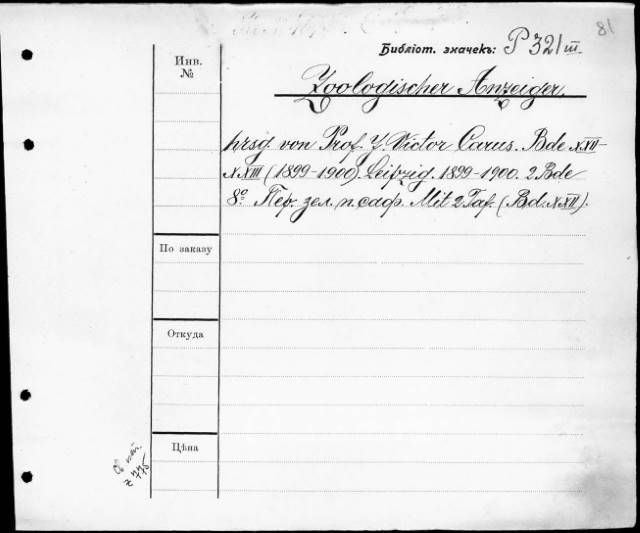 81
Библіот. значекъ: P 321 III
Инв. №
Zoologischer Anzeiger.
hrsg. von Prof. J. Victor Carus. Bde XXII-
XXIII (1899-1900). Leipzig. 1899-1900. 2 Bde
8º. Пер. зел. п. саф. Mit 2 Taf. (Bd. XXII).
По заказу
Откуда
Цѣна
775